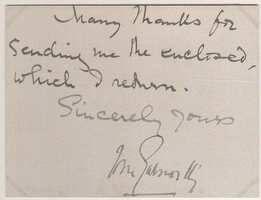 Many thanks for
sending me the enclosed,
which I return.
Sincerely yours